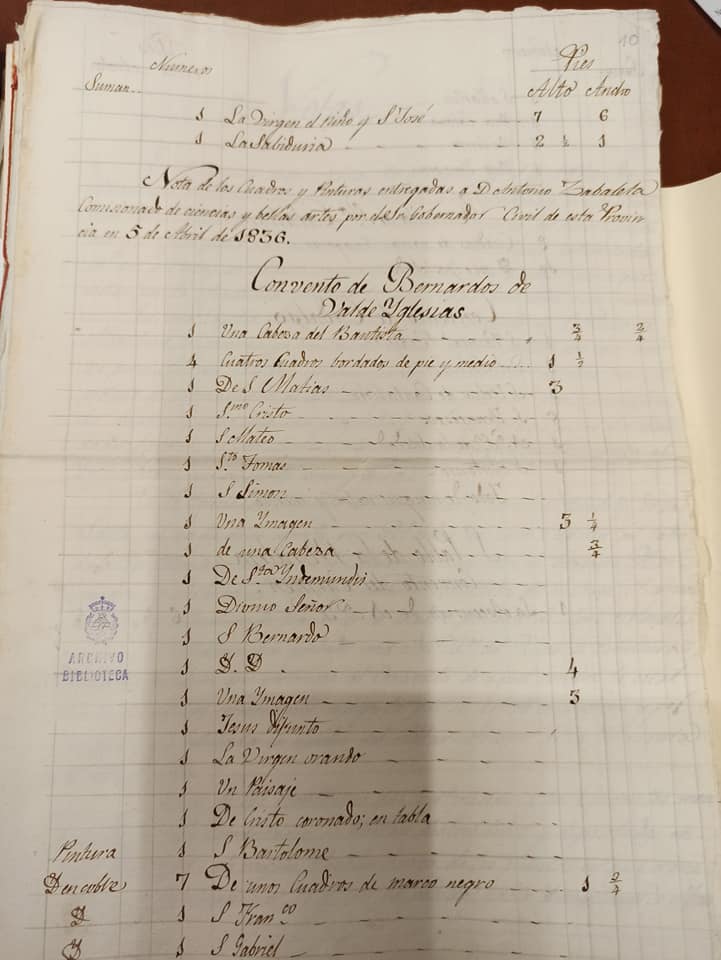 10
Pies
Numeros
Suman Alto Ancho
1 La Virgen el Niño y S José 7 6
1 La Sabiduria 2 ½ 1
Nota de los Cuadros y Pinturas entregadas a D Antonio Zabaleta
Comisionado de ciencias y bellas artes por el Sr Gobernador Civil de esta Provin
cia en 5 de Abril de 1836.
Convento de Bernardos de
Valde Yglesias
1 Una Cabeza del Bautista 3/4 3/4
4 Cuatros Cuadros bordados de pie y medio 1 ½
1 De S Matias 3
1 S.mo Cristo
1 S Mateo
1 S.to Tomas
1 S Simon
1 Una Ymagen 3 ¼
1 de una Cabeza 3/4
1 De S.tos
1 Divino Señor
1 S Bernardo
1 D. D 4
1 Una Ymagen 3
1 Jesus difunto
1 La Virgen orando
1 Un Paisaje
1 De Cristo coronado; en tabla
Pintura 1 S Bartolome
D en cobre 7 De unos Cuadros de marco negro 1 2/4
D 1 S Fran.co
D 1 S Gabriel
ARCHIVO
BIBLIOTECA